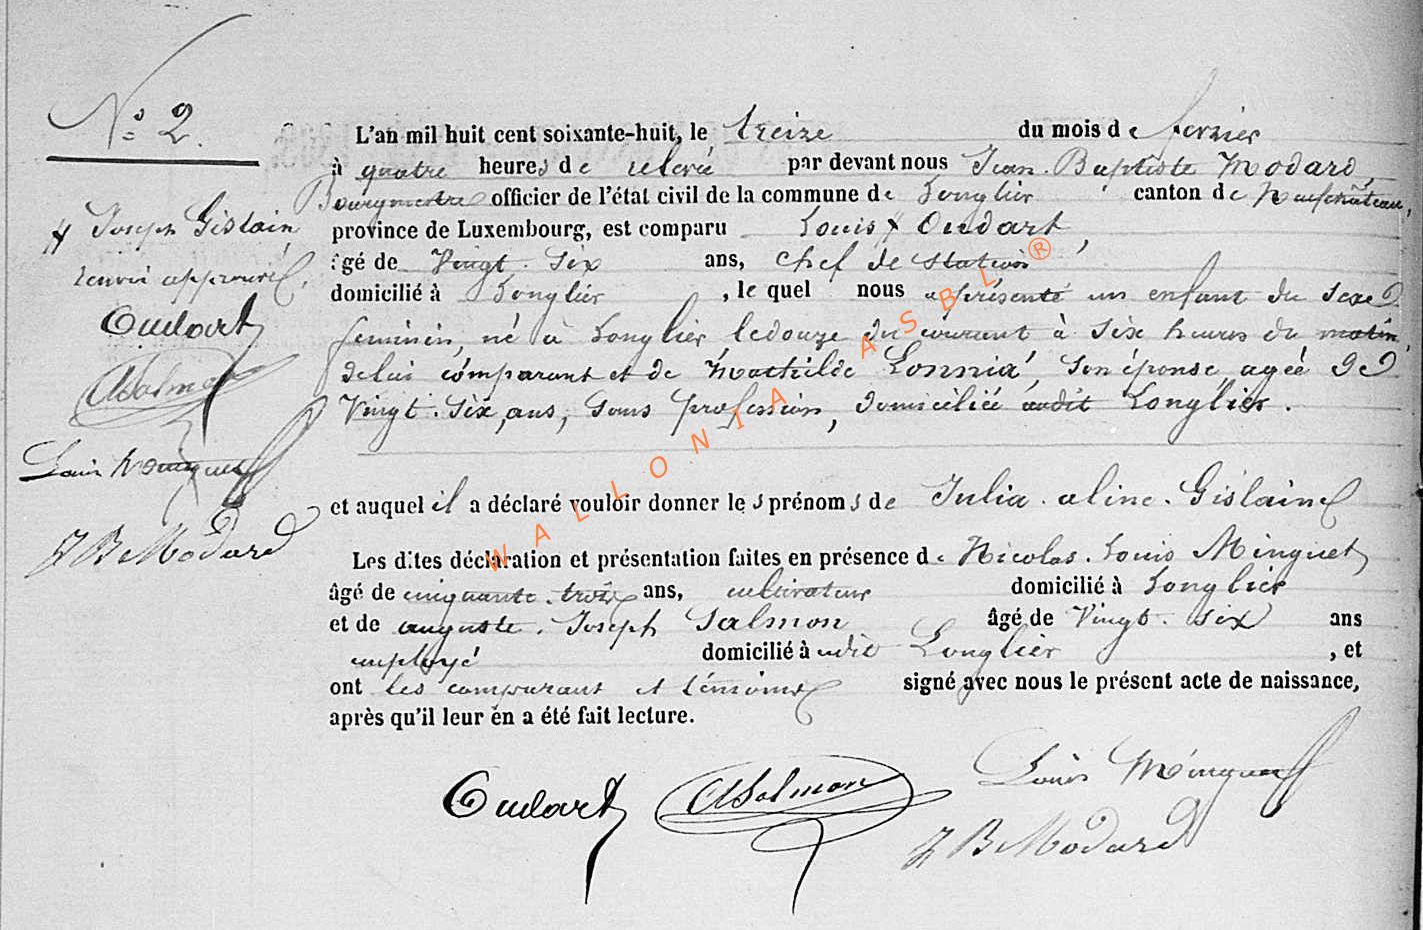 N° 2.
L'an mil huit cent soixante-huit, le treize du mois de fevrier
à quatre heures de relevé par devant nous Jean-Baptiste Modard,
Bourgmestre officier de l'état civil de la commune de Longlier canton de Neufchâteau,
province de Luxembourg, est comparu Louis # Oudart,
# Joseph Gislain
renvoi approuvé,
âgé de Vingt-six ans, chef de station,
domicilié à Longlier, lequel nous a présenté un enfant du sexe
féminin, né à Longlier le douze du courant à six heures du matin,
de lui comparant et de Mathilde Lonnia, son épouse, agéé de
Vingt-six, ans, sans profession, domiciliée audit Longlier.
Oudart
ASalmon
Louis Minguet
J B Modard
et auquel il a déclaré vouloir donner les prénoms de Julia-aline-Gislaine
Les dites déclaration et présentation faites en présence de Nicolas-Louis Minguet
âgé de cinquante-trois ans, cultivateur domicilié à Longlier
et de auguste-Joseph Salmon âgé de Vingt-six ans
employé domicilié à udit Longlier, et
ont les comparant et témoins signé avec nous le présent acte de naissance,
après qu'il leur en a été fait lecture.
Oudart ASalmon Louis Minguet
J B Modard
WALLONIA ASBL ®